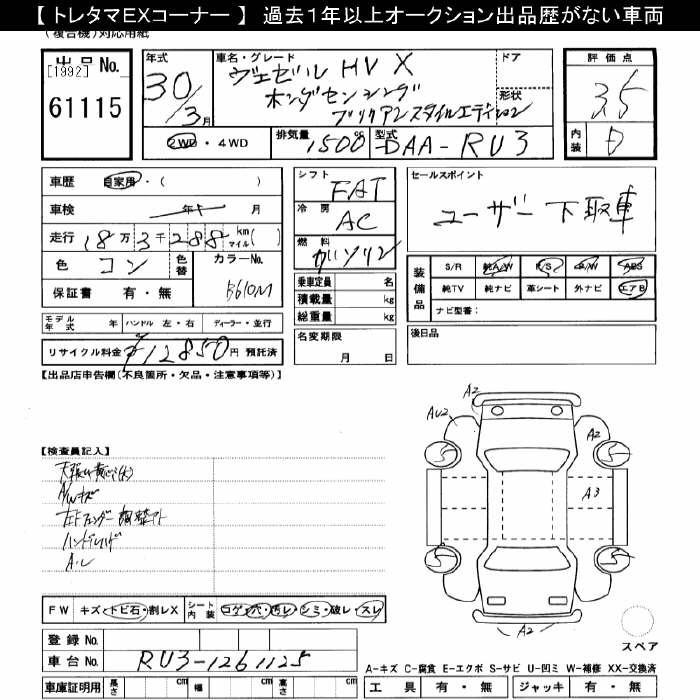 【 トレタマEXコーナー 】 過去１年以上オークション出品歴がない車両
(複合機)対応用紙
出品 No.
[1992]
61115
年式
30/3月
車名・グレード
ヴェゼル HV X
ホンダセンシング
ブラックスタイルエディション
ドア
形状
評価点
3.5
内装
D
2WD ・ 4WD
排気量
1500 cc
型式
DAA-RU3
車歴 自家用・( )
車検 年 月
走行 18万3千288 km マイル( )
色 コン
色替
カラーNo.
B610M
保証書 有・無
シフト
FAT
冷房
AC
燃料
ガソリン
乗車定員 名
積載量 kg
総重量 kg
セールスポイント
ユーザー下取車
装備品
S/R 純A/W P/S P/W ABS
純TV 純ナビ 革シート 外ナビ エアB
ナビ型番:
モデル年式 年 ハンドル 左・右 ディーラー・並行
リサイクル料金 ¥12850円 預託済
名変期限
月 日
後日品
【出品店申告欄(不良箇所・欠品・注意事項等)】
A2
AU2
A2
A3
5
5
5
5
A2
【検査員記入】
A/Wキズ
ハンドルスレ
FW キズ・トビ石・割レX
シート内装 コゲ・穴・汚レ・シミ・破レ・スレ
登録 No.
車台 No. RU3-1261125
車庫証明用 長さ cm 幅 cm 高さ cm
スペア
A-キズ C-腐食 E-エクボ S-サビ U-凹ミ W-補修 XX-交換済
工具 有・無 ジャッキ 有・無